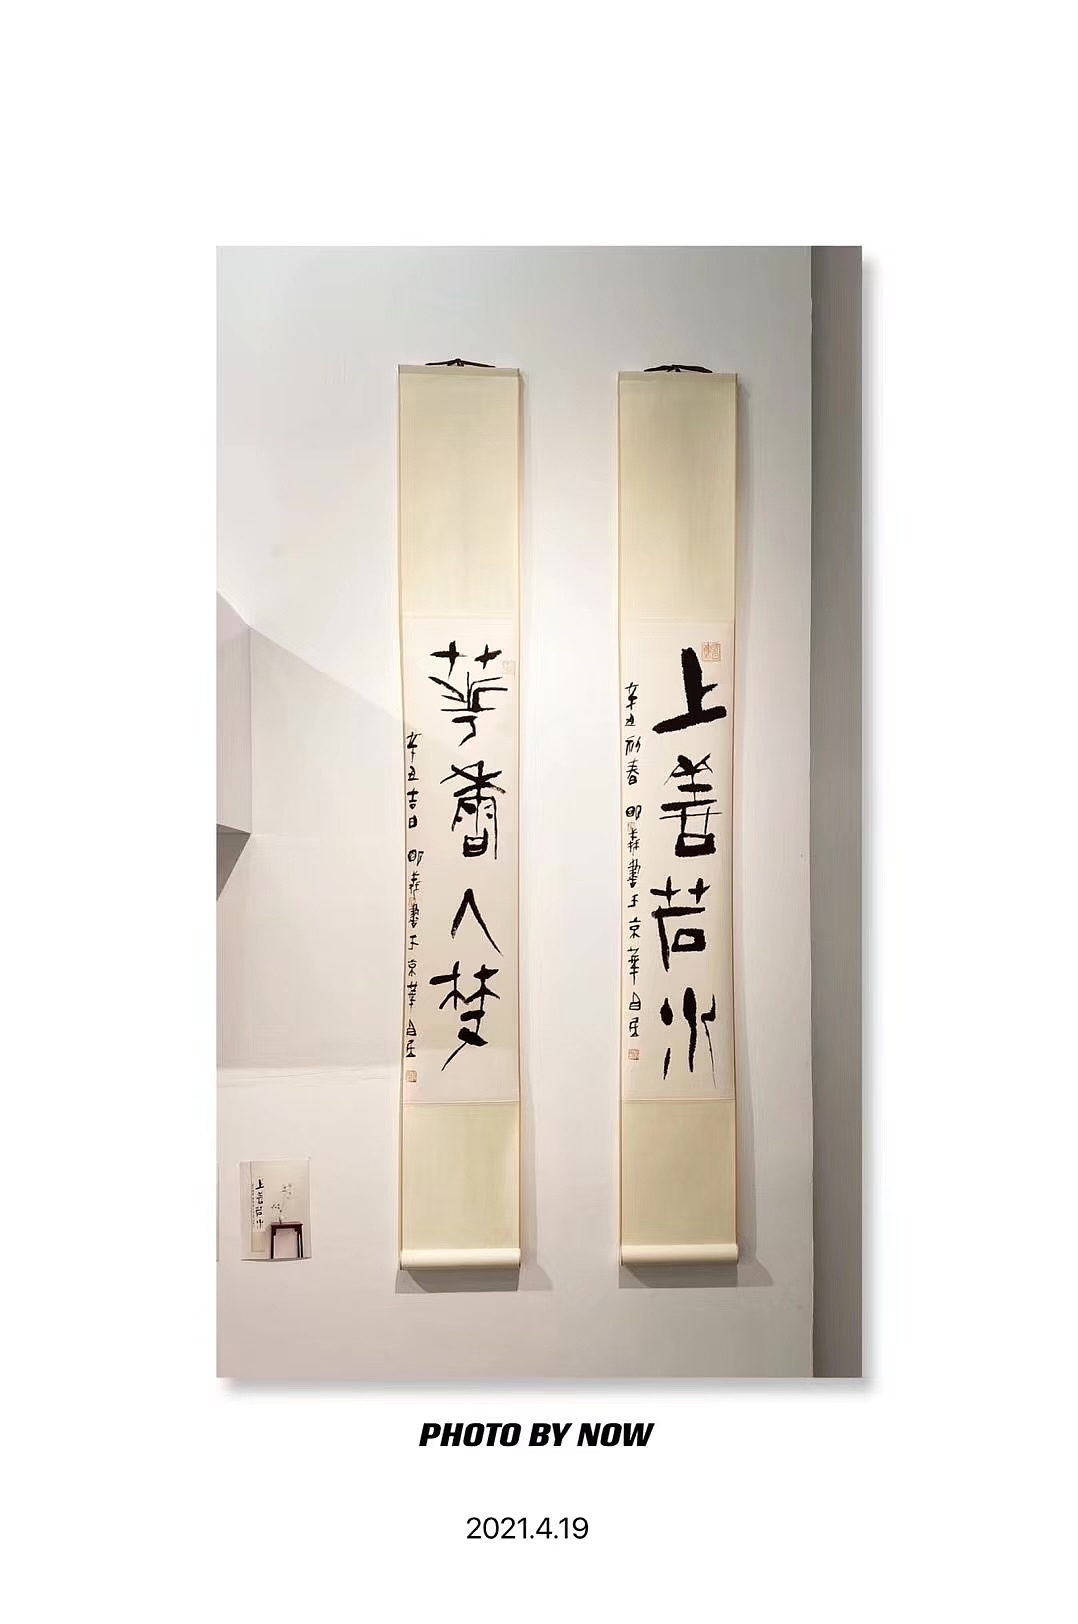 上善若水
辛丑初春 明森書于京華自居
花香入梦
辛丑吉日 明森書于京華自居
上善若水
PHOTO BY NOW
2021.4.19